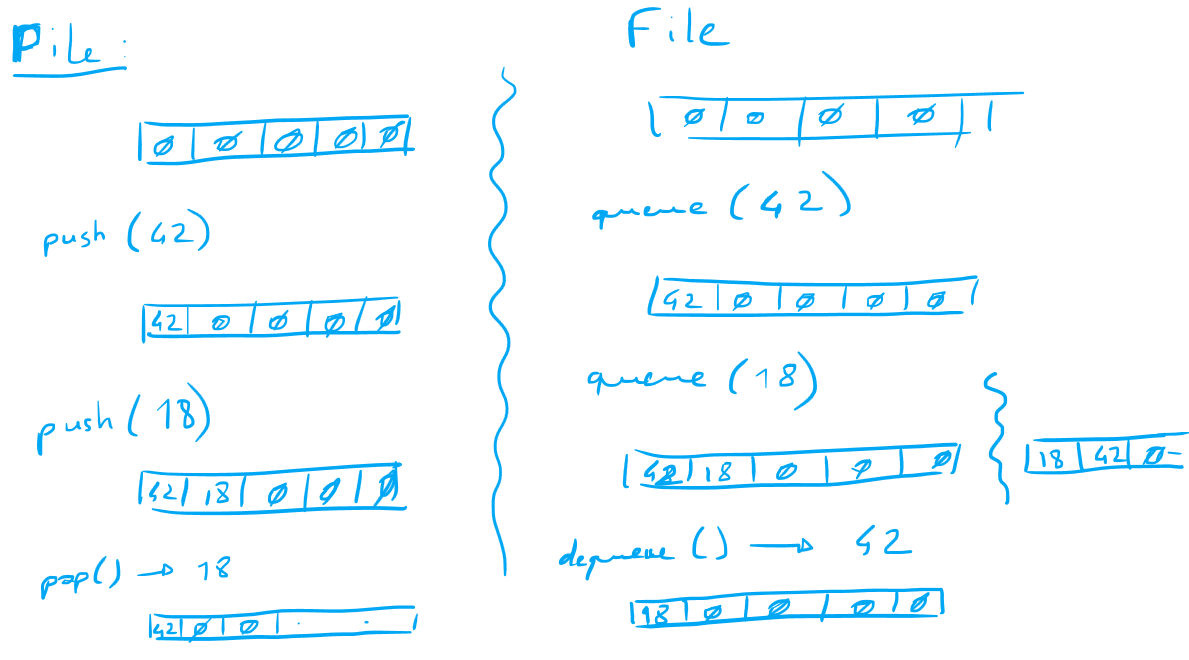 Pile :
∅ ∅ ∅ ∅ ∅
push (42)
42 ∅ ∅ ∅ ∅
push (18)
42 18 ∅ ∅ ∅
pop() → 18
42 ∅ ∅ . .
File
∅ ∅ ∅ ∅
queue (42)
42 ∅ ∅ ∅ ∅
queue (18)
42 18 ∅ ∅ ∅
18 42 ∅
dequeue () → 42
18 ∅ ∅ ∅ ∅